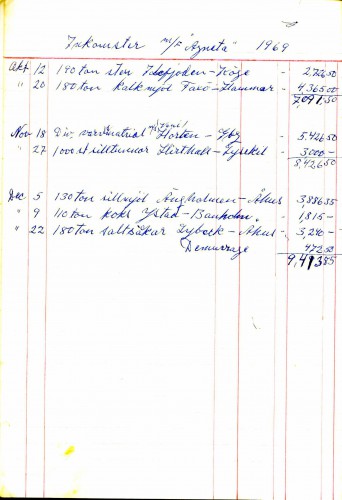 Inkomster m/s "Agneta" 1969
Okt 12 190 ton sten Idefjorden - Köge - 2,726 50
" 20 180 ton Kalkmjöl Faxö - Hammar - 4,365 00
7,091,50
Nov 18 Div. varvsmatrial Horten - Gbg - 5,426 50
" 27 1000 st silltunnor Hirthals - Lysekil - 3,000 -
8,426 50
Dec 5 130 ton sillmjöl Ängholmen - Åhus 3,886 35
" 9 110 ton koks Ystad - - 1,815 -
" 22 180 ton saltsäckar Lybeck - Åhus - 3,240 -
Demurrage 472 50
9,413 85